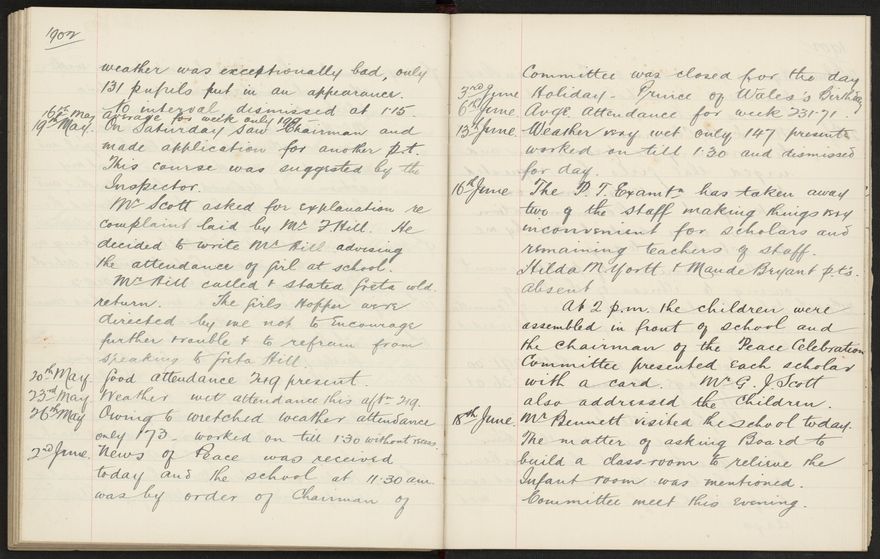 1902
weather was exceptionally bad, only
131 pupils put in an appearance.
No interval dismissed at 1.15.
16th May Average for week only 197.
19th May. On Saturday saw Chairman and
made application for another p.t.
This course was suggested by the
Inspector.
Mr Scott asked for explanation re
complaint laid by Mr F Hill. He
decided to write Mr Hill advising
the attendance of girl at school.
Mr Hill called & stated Greta wld.
return. The girls Hopper were
directed by me not to encourage
further trouble & to refrain from
speaking to Greta Hill.
20th May. Good attendance 249 present.
23rd May. Weather wet attendance this aftn 219.
26th May Owing to wretched weather attendance
only 173 - worked on till 1.30 without recess.
2nd June. News of Peace was received
today and the school at 11.30 am
was by order of Chairman of
Committee was closed for the day
3rd June Holiday - Prince of Wales's Birthday
6th June. Avge. attendance for week 231.71.
13th June. Weather very wet only 147 present
worked on till 1.30 and dismissed
for day.
16th June The P.T. Examtn has taken away
two of the staff making things very
inconvenient for scholars and
remaining teachers of staff.
Hilda M Yortt & Maude Bryant p.t's.
absent
At 2 p.m. the children were
assembled in front of school and
the Chairman of the Peace Celebration
Committee presented each scholar
with a card. Mr G. J. Scott
also addressed the children.
18th June. Mr Bennett visited the school today.
The matter of asking Board to
build a class-room to relieve the
Infant room was mentioned.
Committee meet this evening.